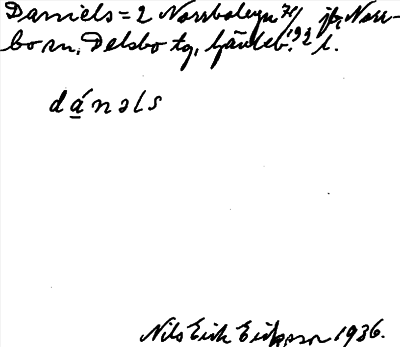 Daniels = 2 Norrbobyn 71/ jb, Norr-
bo sn, Delsbo tg, Gävleb. l.
dánəls
Nils Erik Eriksson 1936.